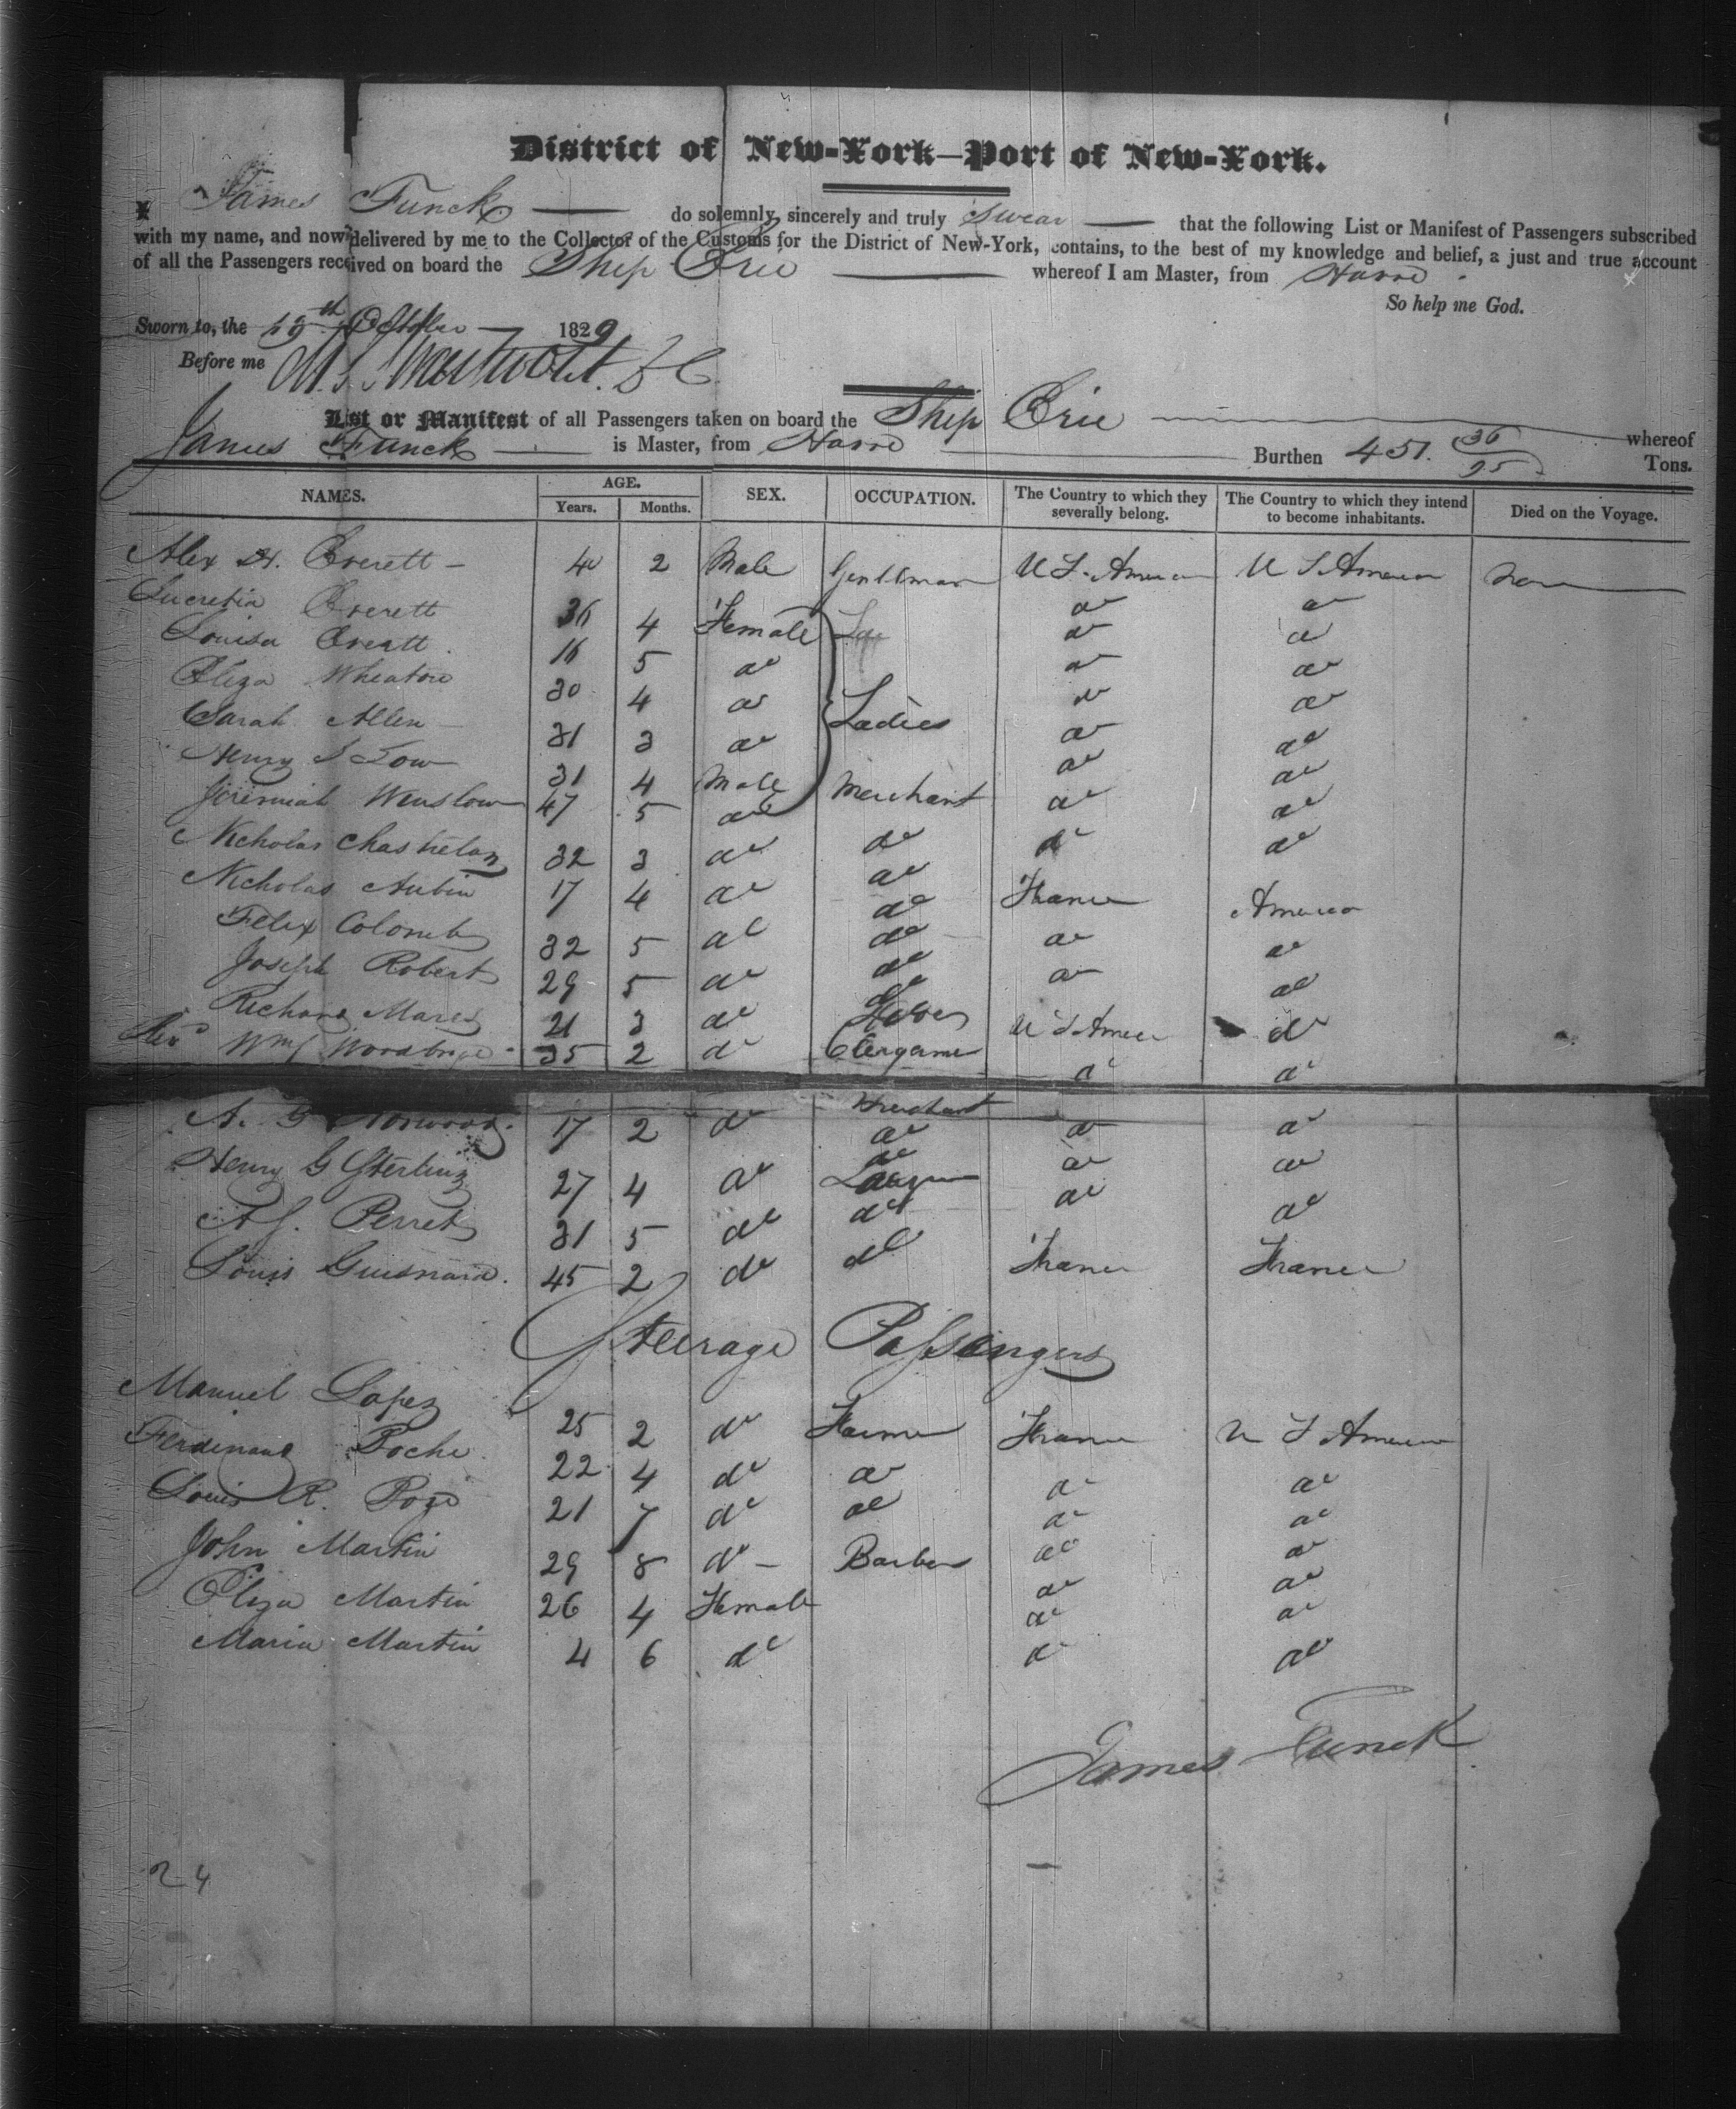 District of New-York—Port of New-York.
I James Funck do solemnly, sincerely and truly Swear that the following List or Manifest of Passengers subscribed
with my name, and now delivered by me to the Collector of the Customs for the District of New-York, contains, to the best of my knowledge and belief, a just and true account
of all the Passengers received on board the Ship Erie whereof I am Master, from Havre.
So help me God.
Sworn to, the 19th October 1829
Before me
List or Manifest of all Passengers taken on board the Ship Erie whereof
James Funck is Master, from Havre Burthen 451. 36/95 Tons.
NAMES. AGE. Years. Months. SEX. OCCUPATION. The Country to which they severally belong. The Country to which they intend to become inhabitants. Died on the Voyage.
Alex H. Everett 40 2 Male Gentleman U S. America U S America
Lucretia Everett 36 4 Female do do
Louisa Everett 16 5 do do do
Eliza Wheaton 30 4 do do do
Sarah Allen 31 3 do Ladies do do
Henry S Low 31 4 Male Merchant do do
Jeremiah Winslow 47 5 do do do do
Nicholas Chastrelan 32 3 do do do do
Nicholas Aubin 17 4 do do France America
Felix Colomb 32 5 do do do do
Joseph Robert 29 5 do do do do
Richard Mares 21 3 do U S America do
Rev Wm Woodbridge 35 2 do Clergeman do do
A. G Norwood 17 2 do Merchant do do
Henry G Sterling 27 4 do do do do
A J. Perret 31 5 do do do do
Louis Guisnard. 45 2 do do France France
Steerage Passengers
Manuel Lopez 25 2 do Farmer France U S America
Ferdinand Poche 22 4 do do do do
Louis R. Poze 21 7 do do do do
John Martin 29 8 do Barber do do
Eliza Martin 26 4 Female do do
Maria Martin 4 6 do do do
James Funck
24